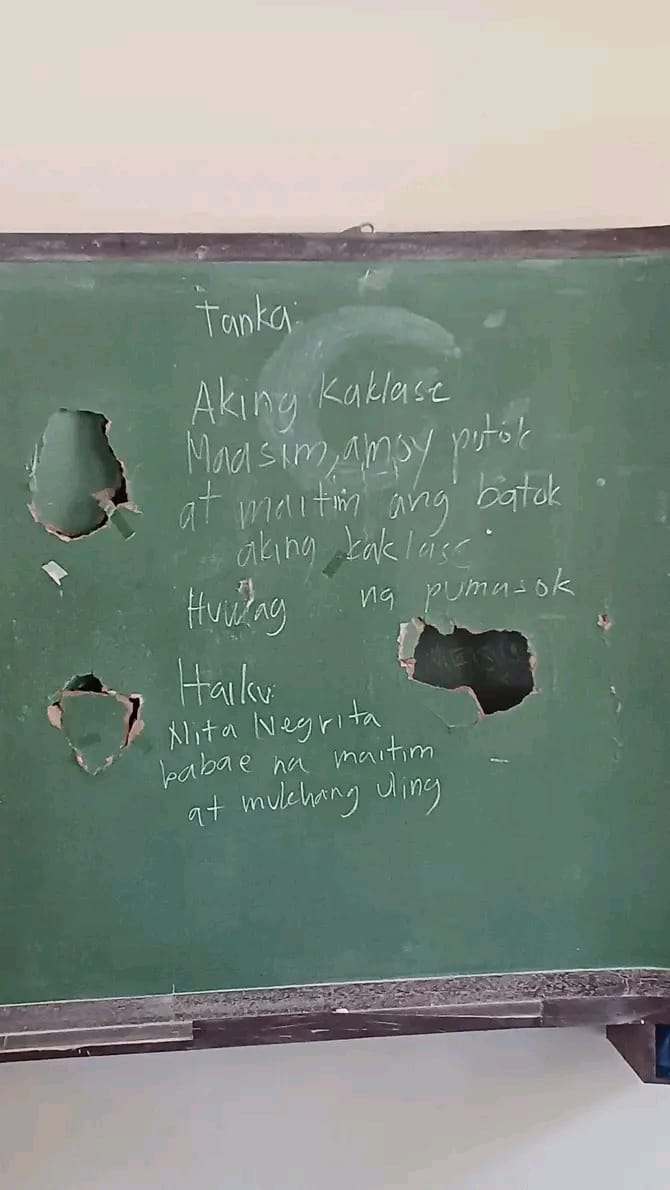 Tanka:
Aking kaklase
Maasim, amoy putok
at maitim ang batok
aking kaklase
Huwag na pumasok
Haiku:
Nita Negrita
babae na maitim
at mukhang uling